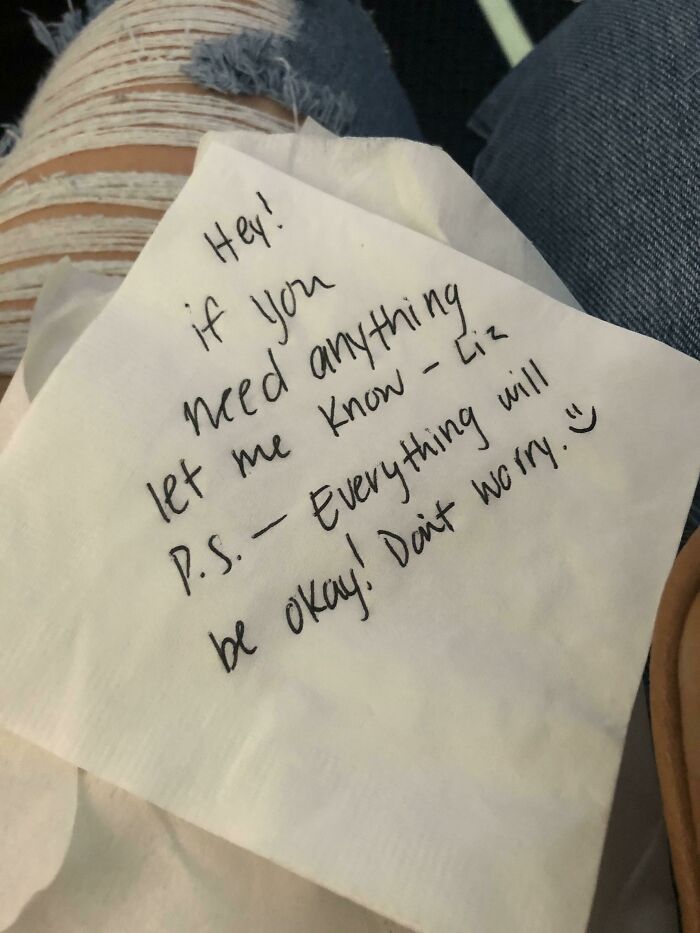 Hey!
if you
need anything
let me know - Liz
P.S. - Everything will
be okay! Don't worry. :)